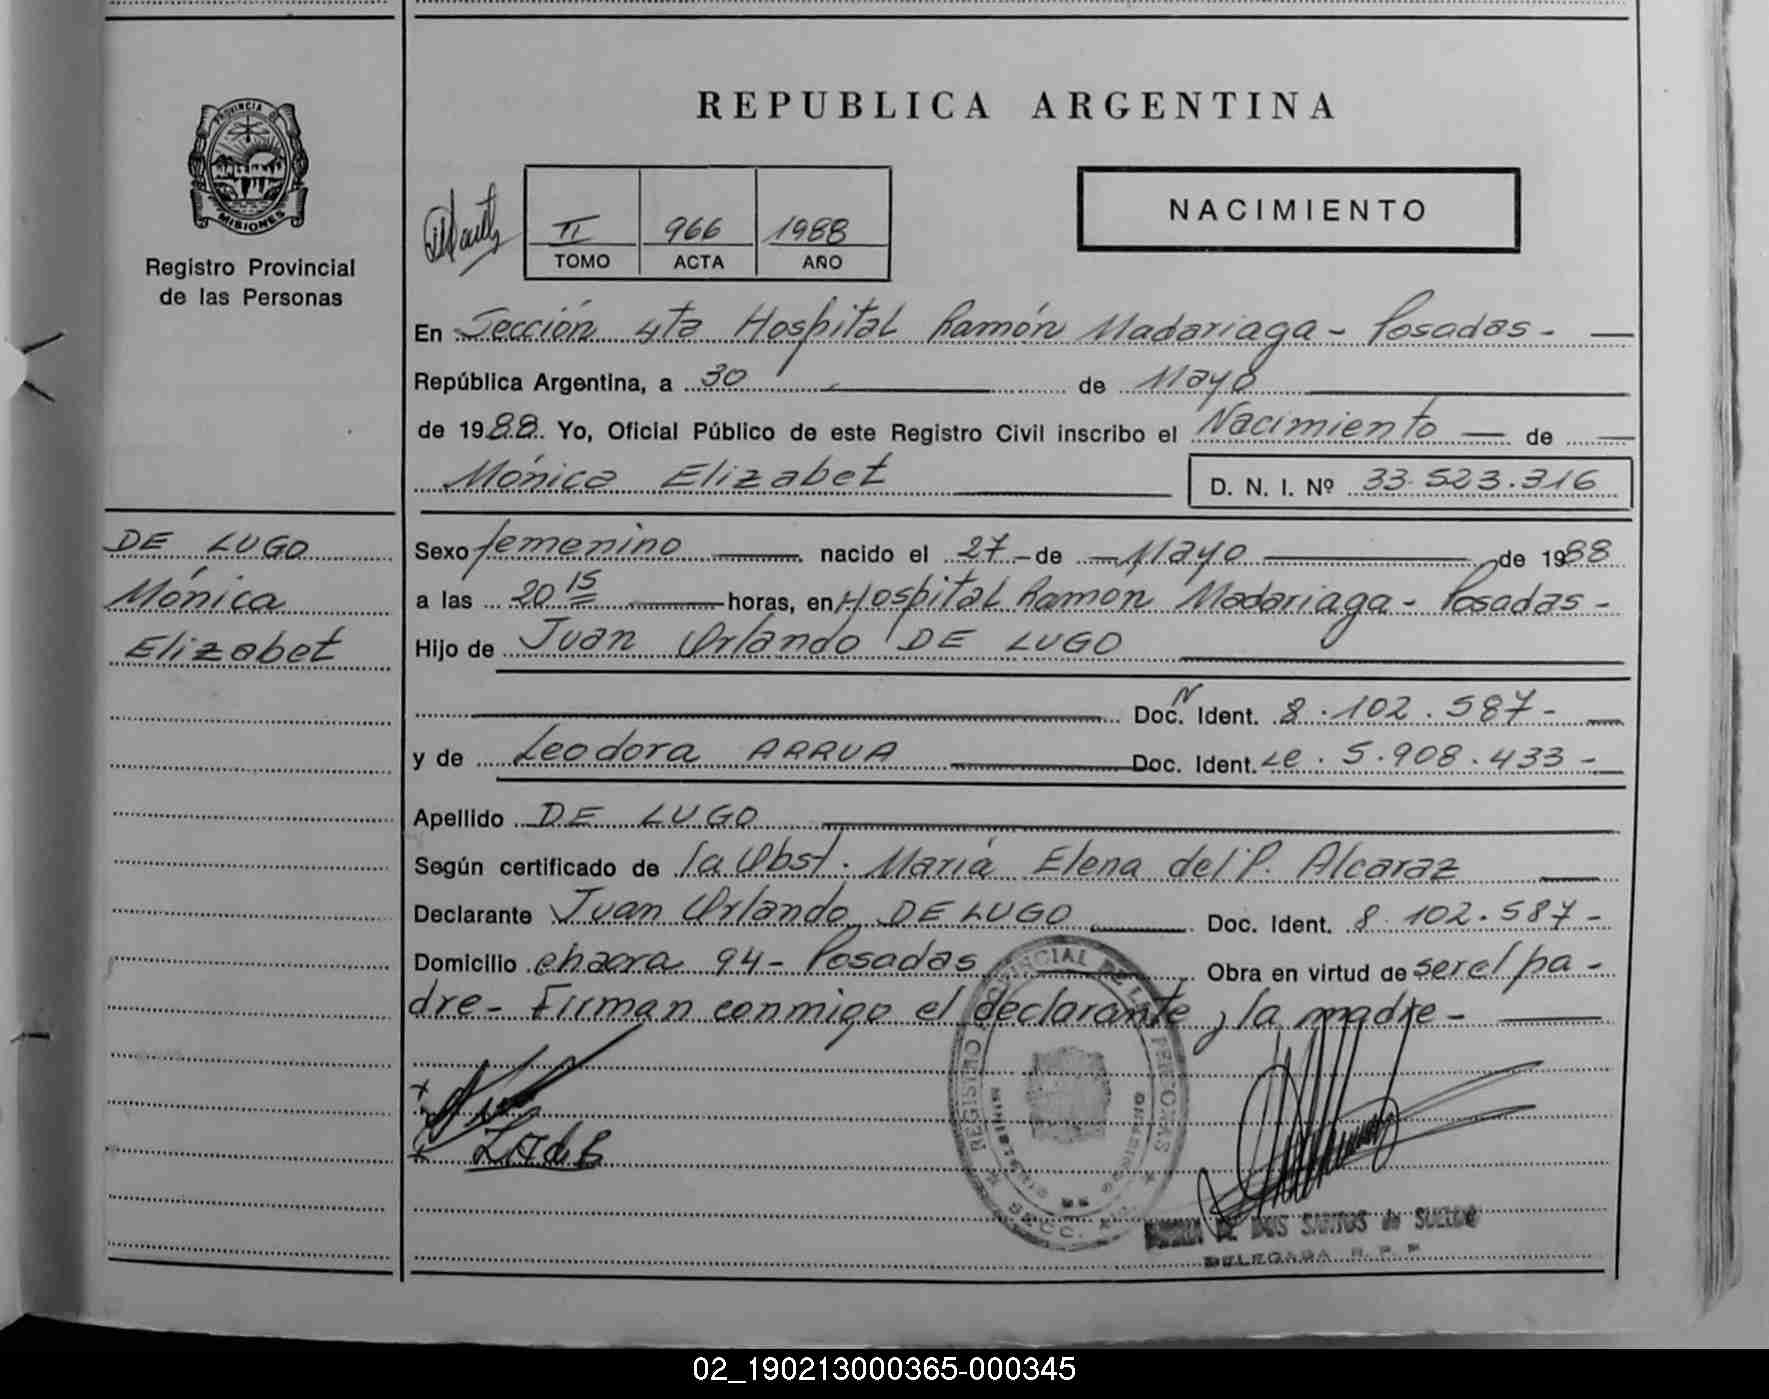 REPUBLICA ARGENTINA
PROVINCIA DE
MISIONES
Registro Provincial
de las Personas
II 966 1988
TOMO ACTA AÑO
NACIMIENTO
En Sección 4ta Hospital Ramón Madariaga - Posadas -
República Argentina, a 30 de Mayo
de 1988. Yo, Oficial Público de este Registro Civil inscribo el Nacimiento — de —
Mónica Elizabet D. N. I. Nº 33.523.316
DE LUGO
Mónica
Elizabet
Sexo femenino nacido el 27 - de - Mayo de 1988
a las 20 15 horas, en Hospital Ramon Madariaga - Posadas -
Hijo de Juan Orlando DE LUGO
Doc. N Ident. 8.102.587 -
y de Leodora ARRUA Doc. Ident. Lc. 5.908.433 -
Apellido DE LUGO
Según certificado de la Obst. María Elena del P. Alcaraz
Declarante Juan Orlando DE LUGO Doc. Ident. 8.102.587 -
Domicilio chacra 94 - Posadas Obra en virtud de ser el pa -
dre - Firman conmigo el declarante y la madre -
REGISTRO PROVINCIAL DE LAS PERSONAS
MINISTERIO DE GOBIERNO
DE DOS SANTOS de SUELDO
DELEGADA R. P. P.
02_190213000365-000345